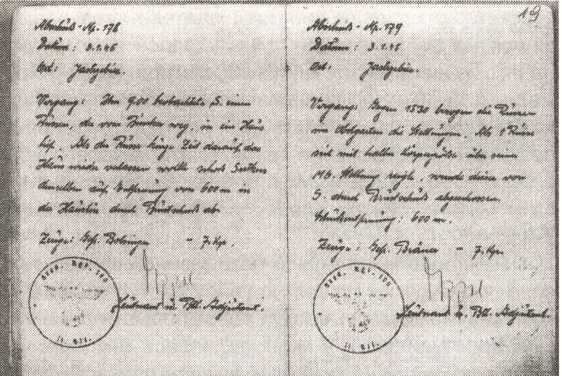 Abschuß-Nr. 178
Datum: 3.1.45
Ort:
Vorgang: Um 9.00 beobachtete S. einen
Russen, der vom Bunker weg, in ein Haus
lief. Als der Russe kurze Zeit darauf das
Haus wieder verlassen wollte schoß Sutkus
denselben auf Entfernung von 600 m in
der Haustür durch Brustschuß ab.
Zeuge: Gef. - 7. Kp.
Leutnant u. Btl. Adjutant.
19
Abschuß-Nr. 179
Datum: 3.1.45
Ort:
Vorgang: Gegen 1530 bezogen die Russen
im Obstgarten die Stellungen. Als 1 Russe
sich mit halber Körpergröße über seine
MG. Stellung zeigte, wurde dieser von
S. durch Brustschuß abgeschossen.
Schußentfernung: 600 m.
Zeuge: Gef. - 7. Kp.
Leutnant u. Btl. Adjutant.